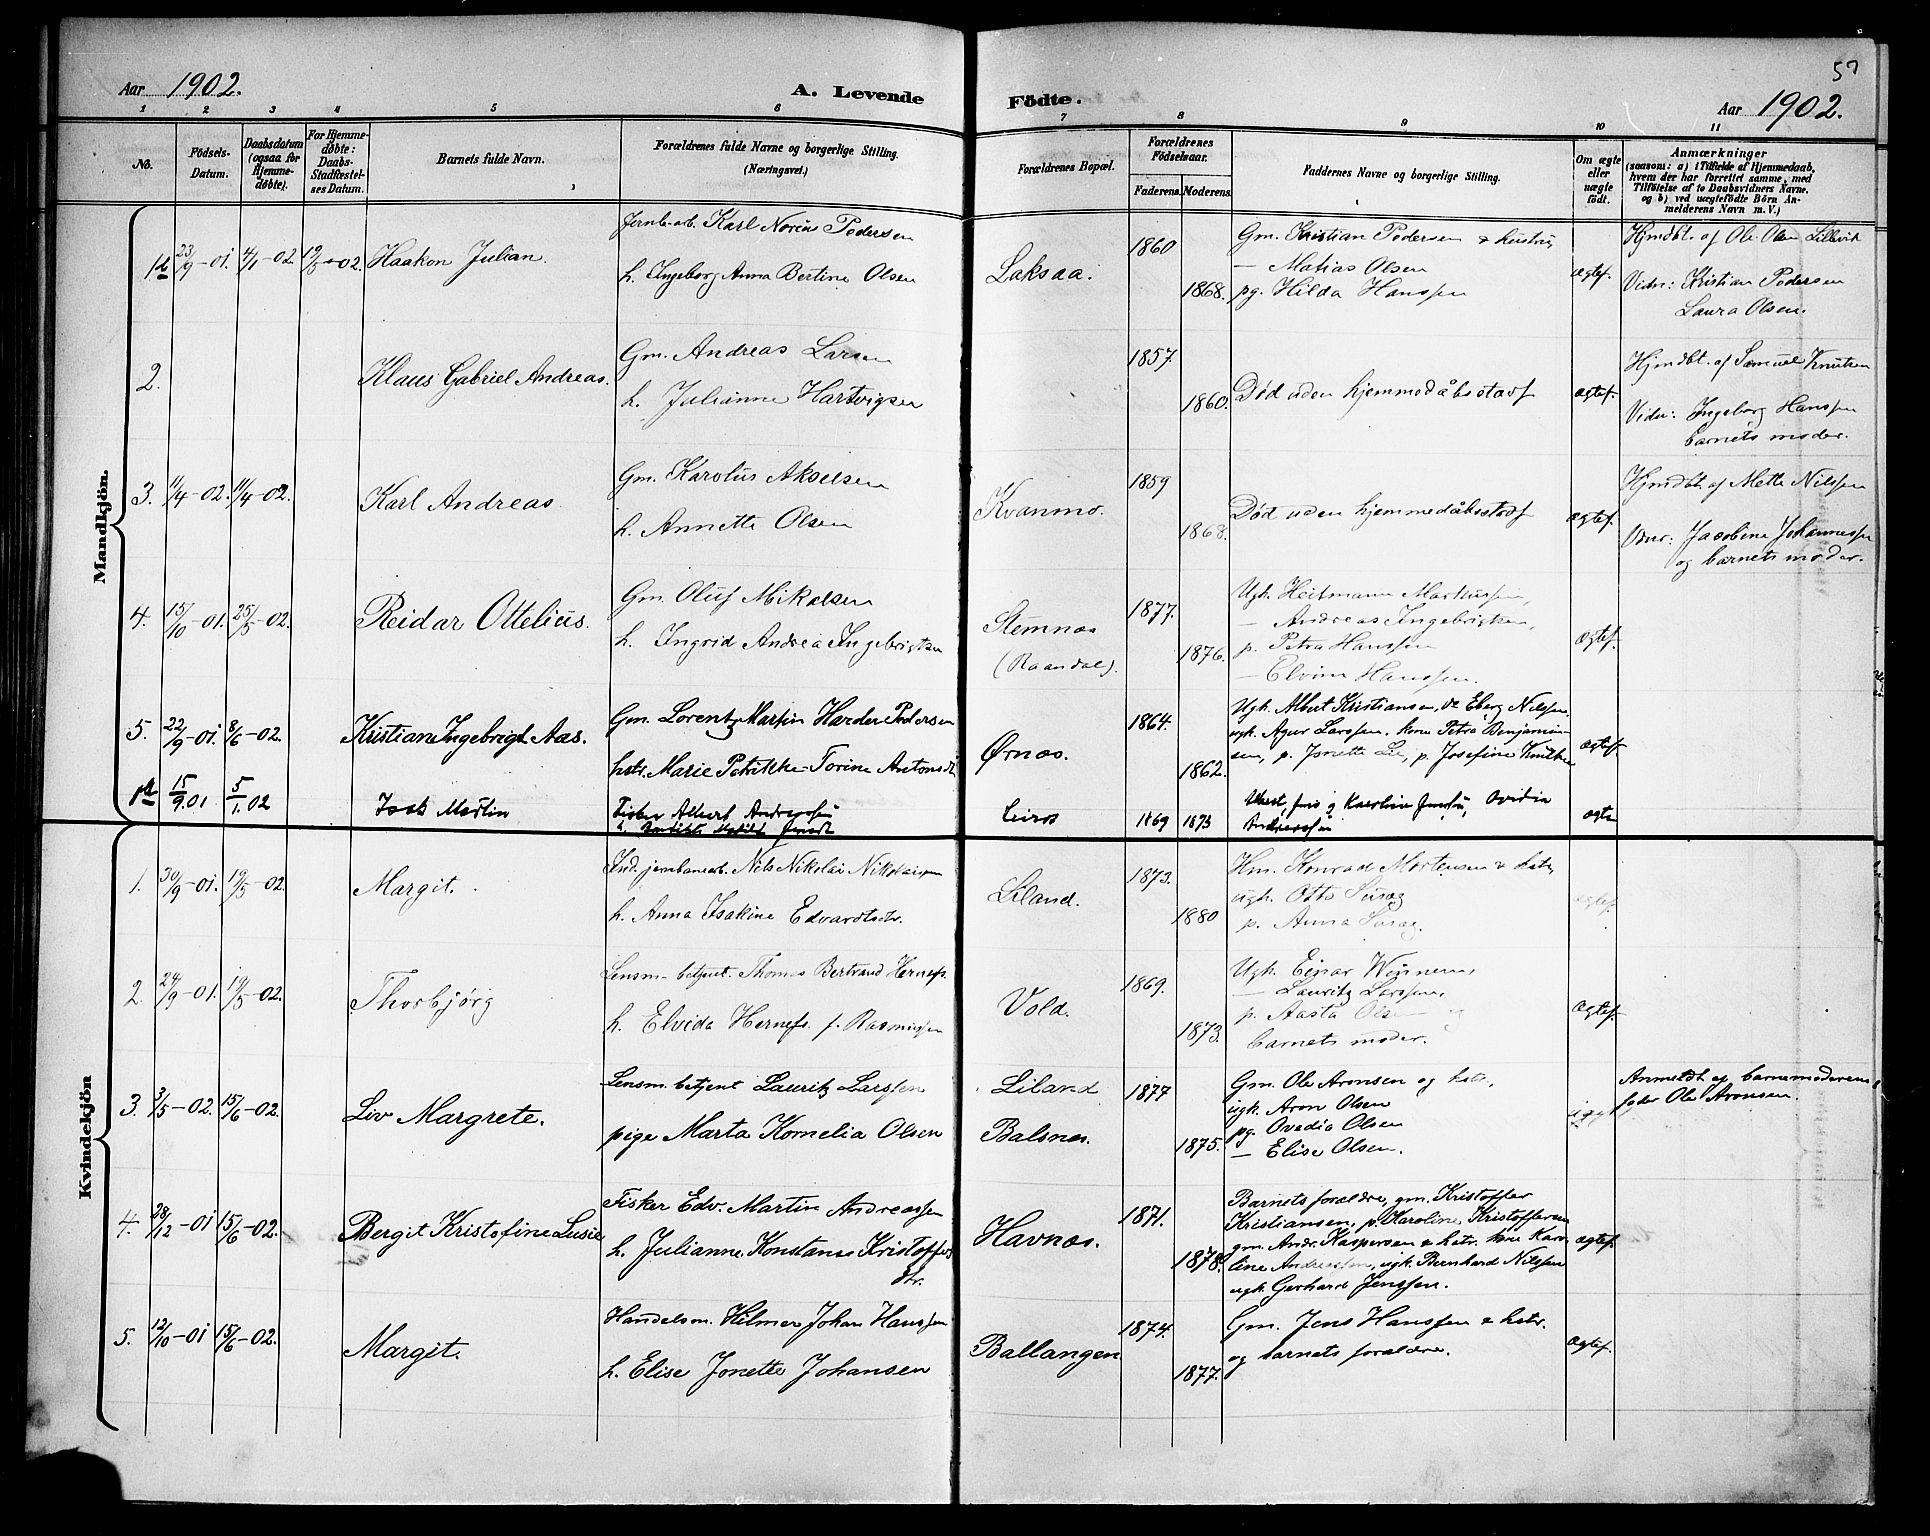 57
Aar 1902. A. Levende Födte. Aar 1902.
1 2 3 4 5 6 7 8 9 10 11
No. Födsels-Datum. Daabsdatum (ogsaa for Hjemme-döbte). For Hjemme-döbte: Daabs-Stadfæstel-ses Datum. Barnets fulde Navn. Forældrenes fulde Navne og borgerlige Stilling. (Næringsvei.) Forældrenes Bopæl. Forældrenes Födselsaar. Faderens. Moderens. Faddernes Navne og borgerlige Stilling. Om ægte eller uægte født. Anmærkninger
(saasom: a) i Tilfælde af Hjemmedaab, hvem der har forrettet samme, med Tilföielse af to Daabsvidners Navne. og b) ved uægtefödte Börn An-melderens Navn m. V.)
Mandkjön.
Jernb.-arb. Karl Norius Pedersen 1860 Gm. Kristian Pedersen & hustru, Hjmdbt. af Ole Olsen
1 23/9-01. 4/1-02 19/5-02. Haakon Julian. h. Ingeborg Anna Bertine Olsen Laksaa. 1868. — Matias Olsen ægtef. Vidn: Kristian Pedersen
pg. Hilda Hanssen Laura Olsen.
Gm. Andreas Larsen 1857. Hjmdbt. af Samuel Knutsen
2. Klaus Gabriel Andreas. h. Julianne Hartvigsen 1860. Død uden hjemmedåbsstadf ægtef. Vidn: Ingeborg Hanssen
barnets moder.
Gm. Karolus Akselsen 1859 Hjmdbt. af Mette Nilssen
3. 11/4-02. 11/4-02. Karl Andreas h. Annette Olsen Kvanmo. 1868. Død uden hjemmedåbsstadf ægtef. Vidn: Jacobine Johannessen
og barnets moder.
Gm. Oluf Mikalsen 1877. Ugk. Heitmann Markussen,
4. 15/10-01. 25/5-02. Reidar Ottelius. h. Ingrid Andrea Ingebrigtsen Stemnæs 1876. — Andreas Ingebrigtsen, ægtef.
(Raandal). p. Petra Hanssen
— Elvine Hanssen.
5. 22/9-01. 8/6-02. Kristian Ingebrigt Aas. Gm. Lorentz Martin Harder Pedersen 1864. Ugk. Albert Kristiansen, Eberg Nilssen,
ugk. Agur Larssen, kone Petra Benjamin-
hstr. Marie Petrikke Torine Antonsdt Ørnæs. 1862. sen, p. Jonette Lie, p. Josefine Knutsen ægtef.
15/9.01 5/1.02 Isak Martin Fisker Albert Andreassen Leiros 1869 1873 Jens og Karoline Jensen, Ovidia ægte
Andreassen
Kvindekjön
1. 30/9-01. 19/5-02. Margit. Ind. jernbanearb. Nils Nikolai Nikolaisen 1873. Hm. Konrad Mortensen & hstr,
h. Anna Isakine Edvardtsdtr. Liland. 1880 ugk. Otto ægtef.
p. Anna
2. 24/9-01. 19/5-02. Thorbjørg Lensm-betjent. Thomas Bertrand Hernes 1869. Ugk. Einar Winnem,
— Lauritz Larssen,
h. Elvida Hernes f. Rasmussen Vold. 1873. p. Aasta Olsen og ægtef.
barnets moder.
3. 3/5-02. 15/6-02. Liv Margrete. Lensm. betjent Lauritz Larssen Liland 1877 Gm. Ole Aronsen og hstr, Anmeldt af barnemoderens
ugk. Aron Olsen fader Ole Aronsen.
pige Marta Kornelia Olsen Balsnes. 1875. pg. Ovedia Olsen
— Elise Olsen.
4. 28/12-01 15/6-02. Bergit Kristofine Lusie Fisker Edv. Martin Andreassen 1871. Barnets forældre, gm. Kristoffer
Kristiansen, p. Karoline Kristoffersen
h. Julianne Konstanse Kristoffers Havnæs. 1878. gm. Andr. Kaspersen & hstr. kone Karo- ægtef.
dtr. line Andreassen, ugk. Bernhard Nilssen
ugk. Gerhard Jenssen.
5. 12/10-01 15/6-02. Margit. Handelsm. Hilmer Johan Hanssen 1874. Gm. Jens Hanssen & hstr.
h. Elise Jonette Johansen Ballangen 1877. og barnets forældre. ægtef.